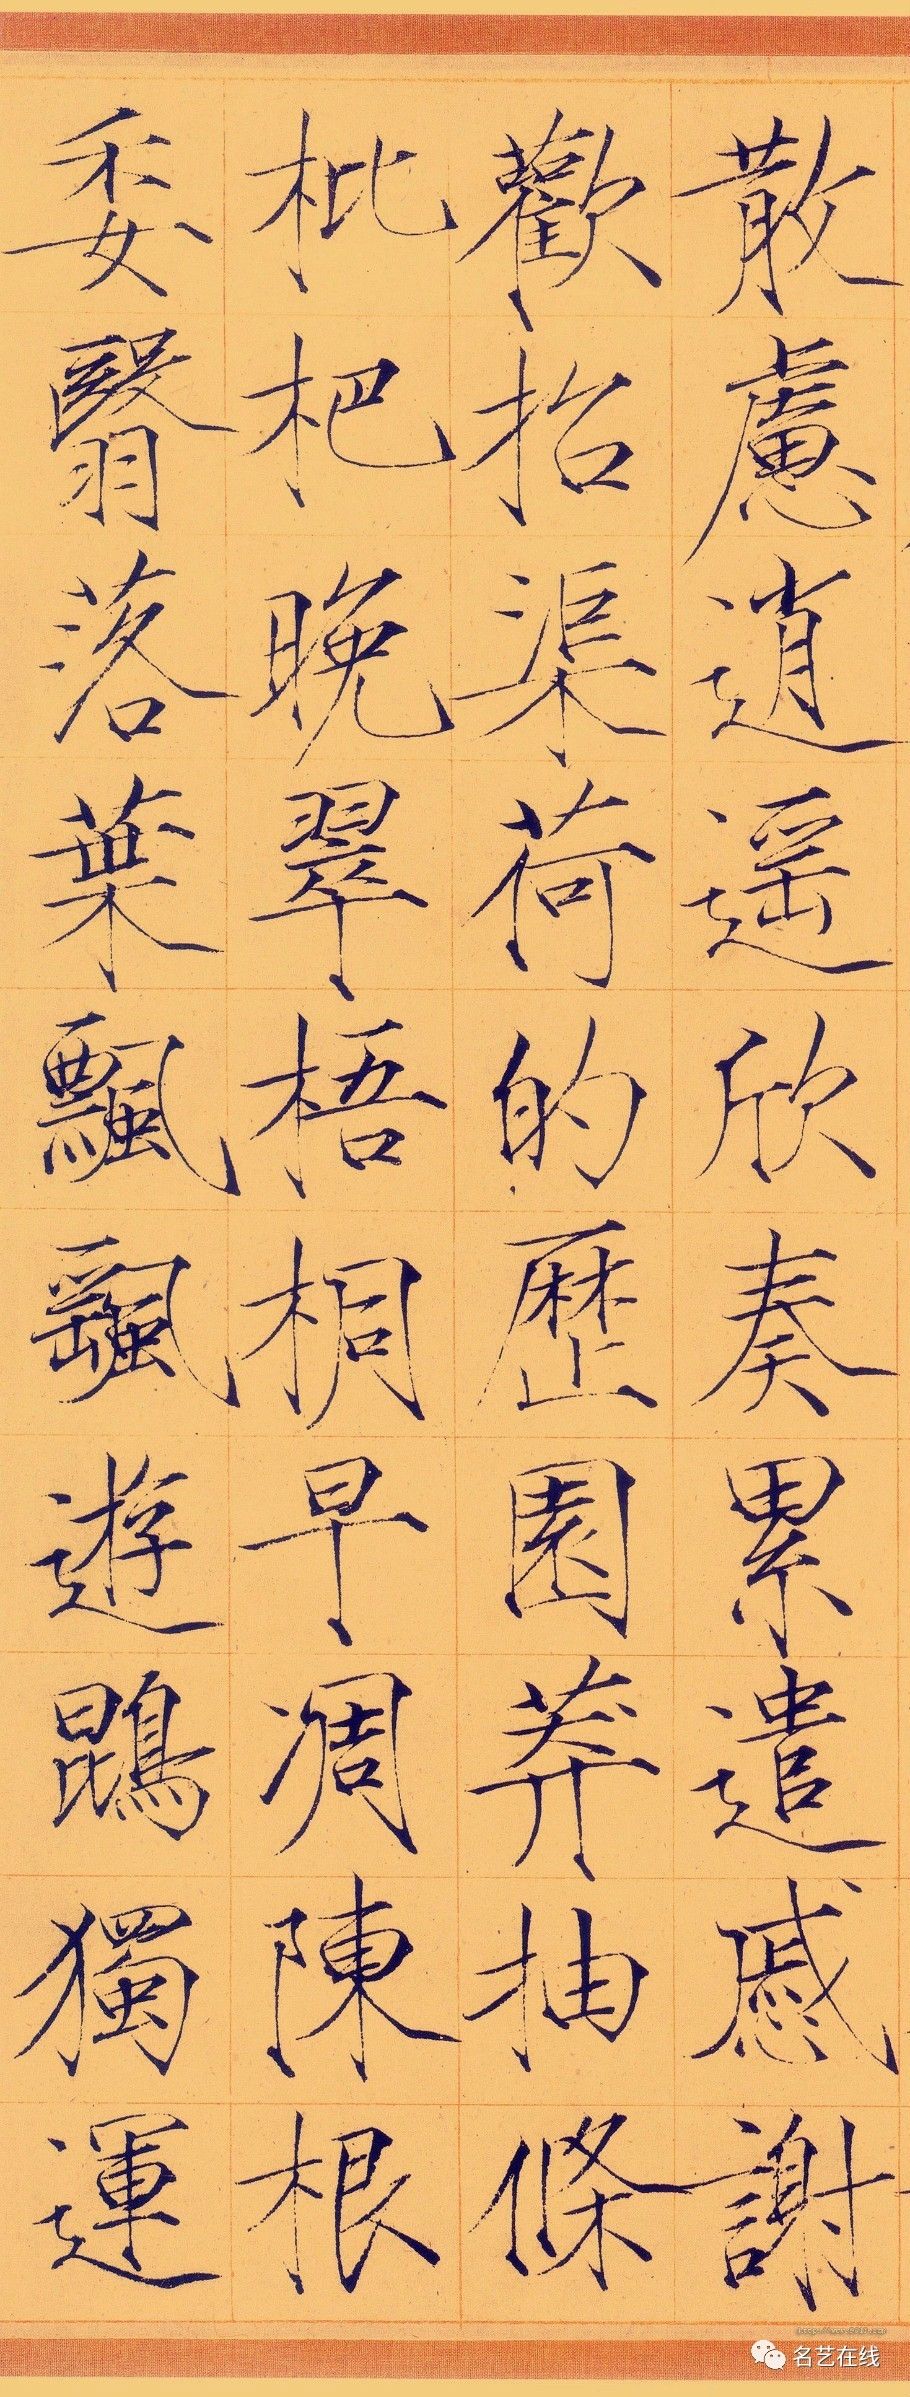 散慮逍遥欣奏累遣慼謝
歡招渠荷的歷園莽抽條
枇杷晚翠梧桐早凋陳根
委翳落葉飄颻遊鵾獨運
名艺在线